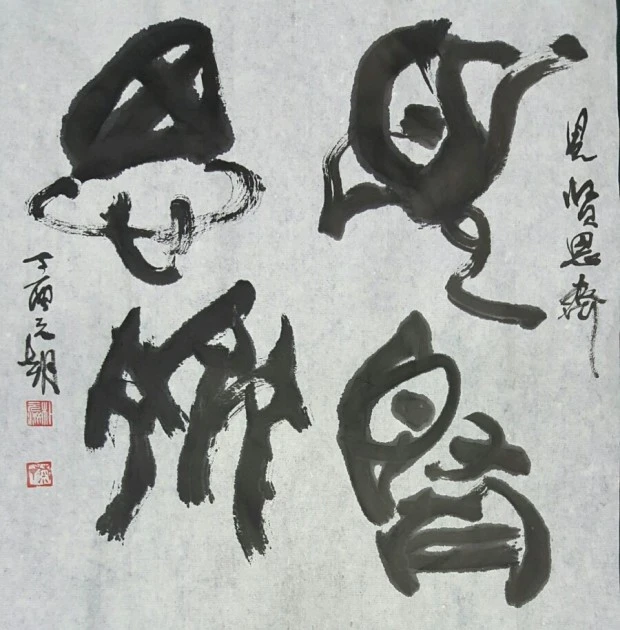 見賢思齊
見賢
思齊
丁酉元朝